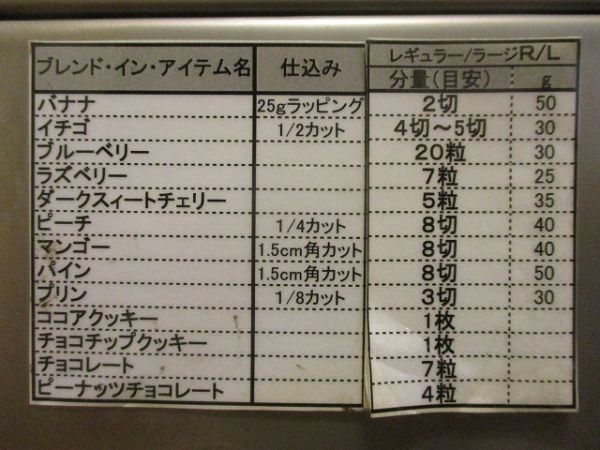 レギュラー/ラージR/L
ブレンド・イン・アイテム名 仕込み 分量(目安) g
バナナ 25gラッピング 2切 50
イチゴ 1/2カット 4切～5切 30
ブルーベリー 20粒 30
ラズベリー 7粒 25
ダークスィートチェリー 5粒 35
ピーチ 1/4カット 8切 40
マンゴー 1.5cm角カット 8切 40
パイン 1.5cm角カット 8切 50
プリン 1/8カット 3切 30
ココアクッキー 1枚
チョコチップクッキー 1枚
チョコレート 7粒
ピーナッツチョコレート 4粒